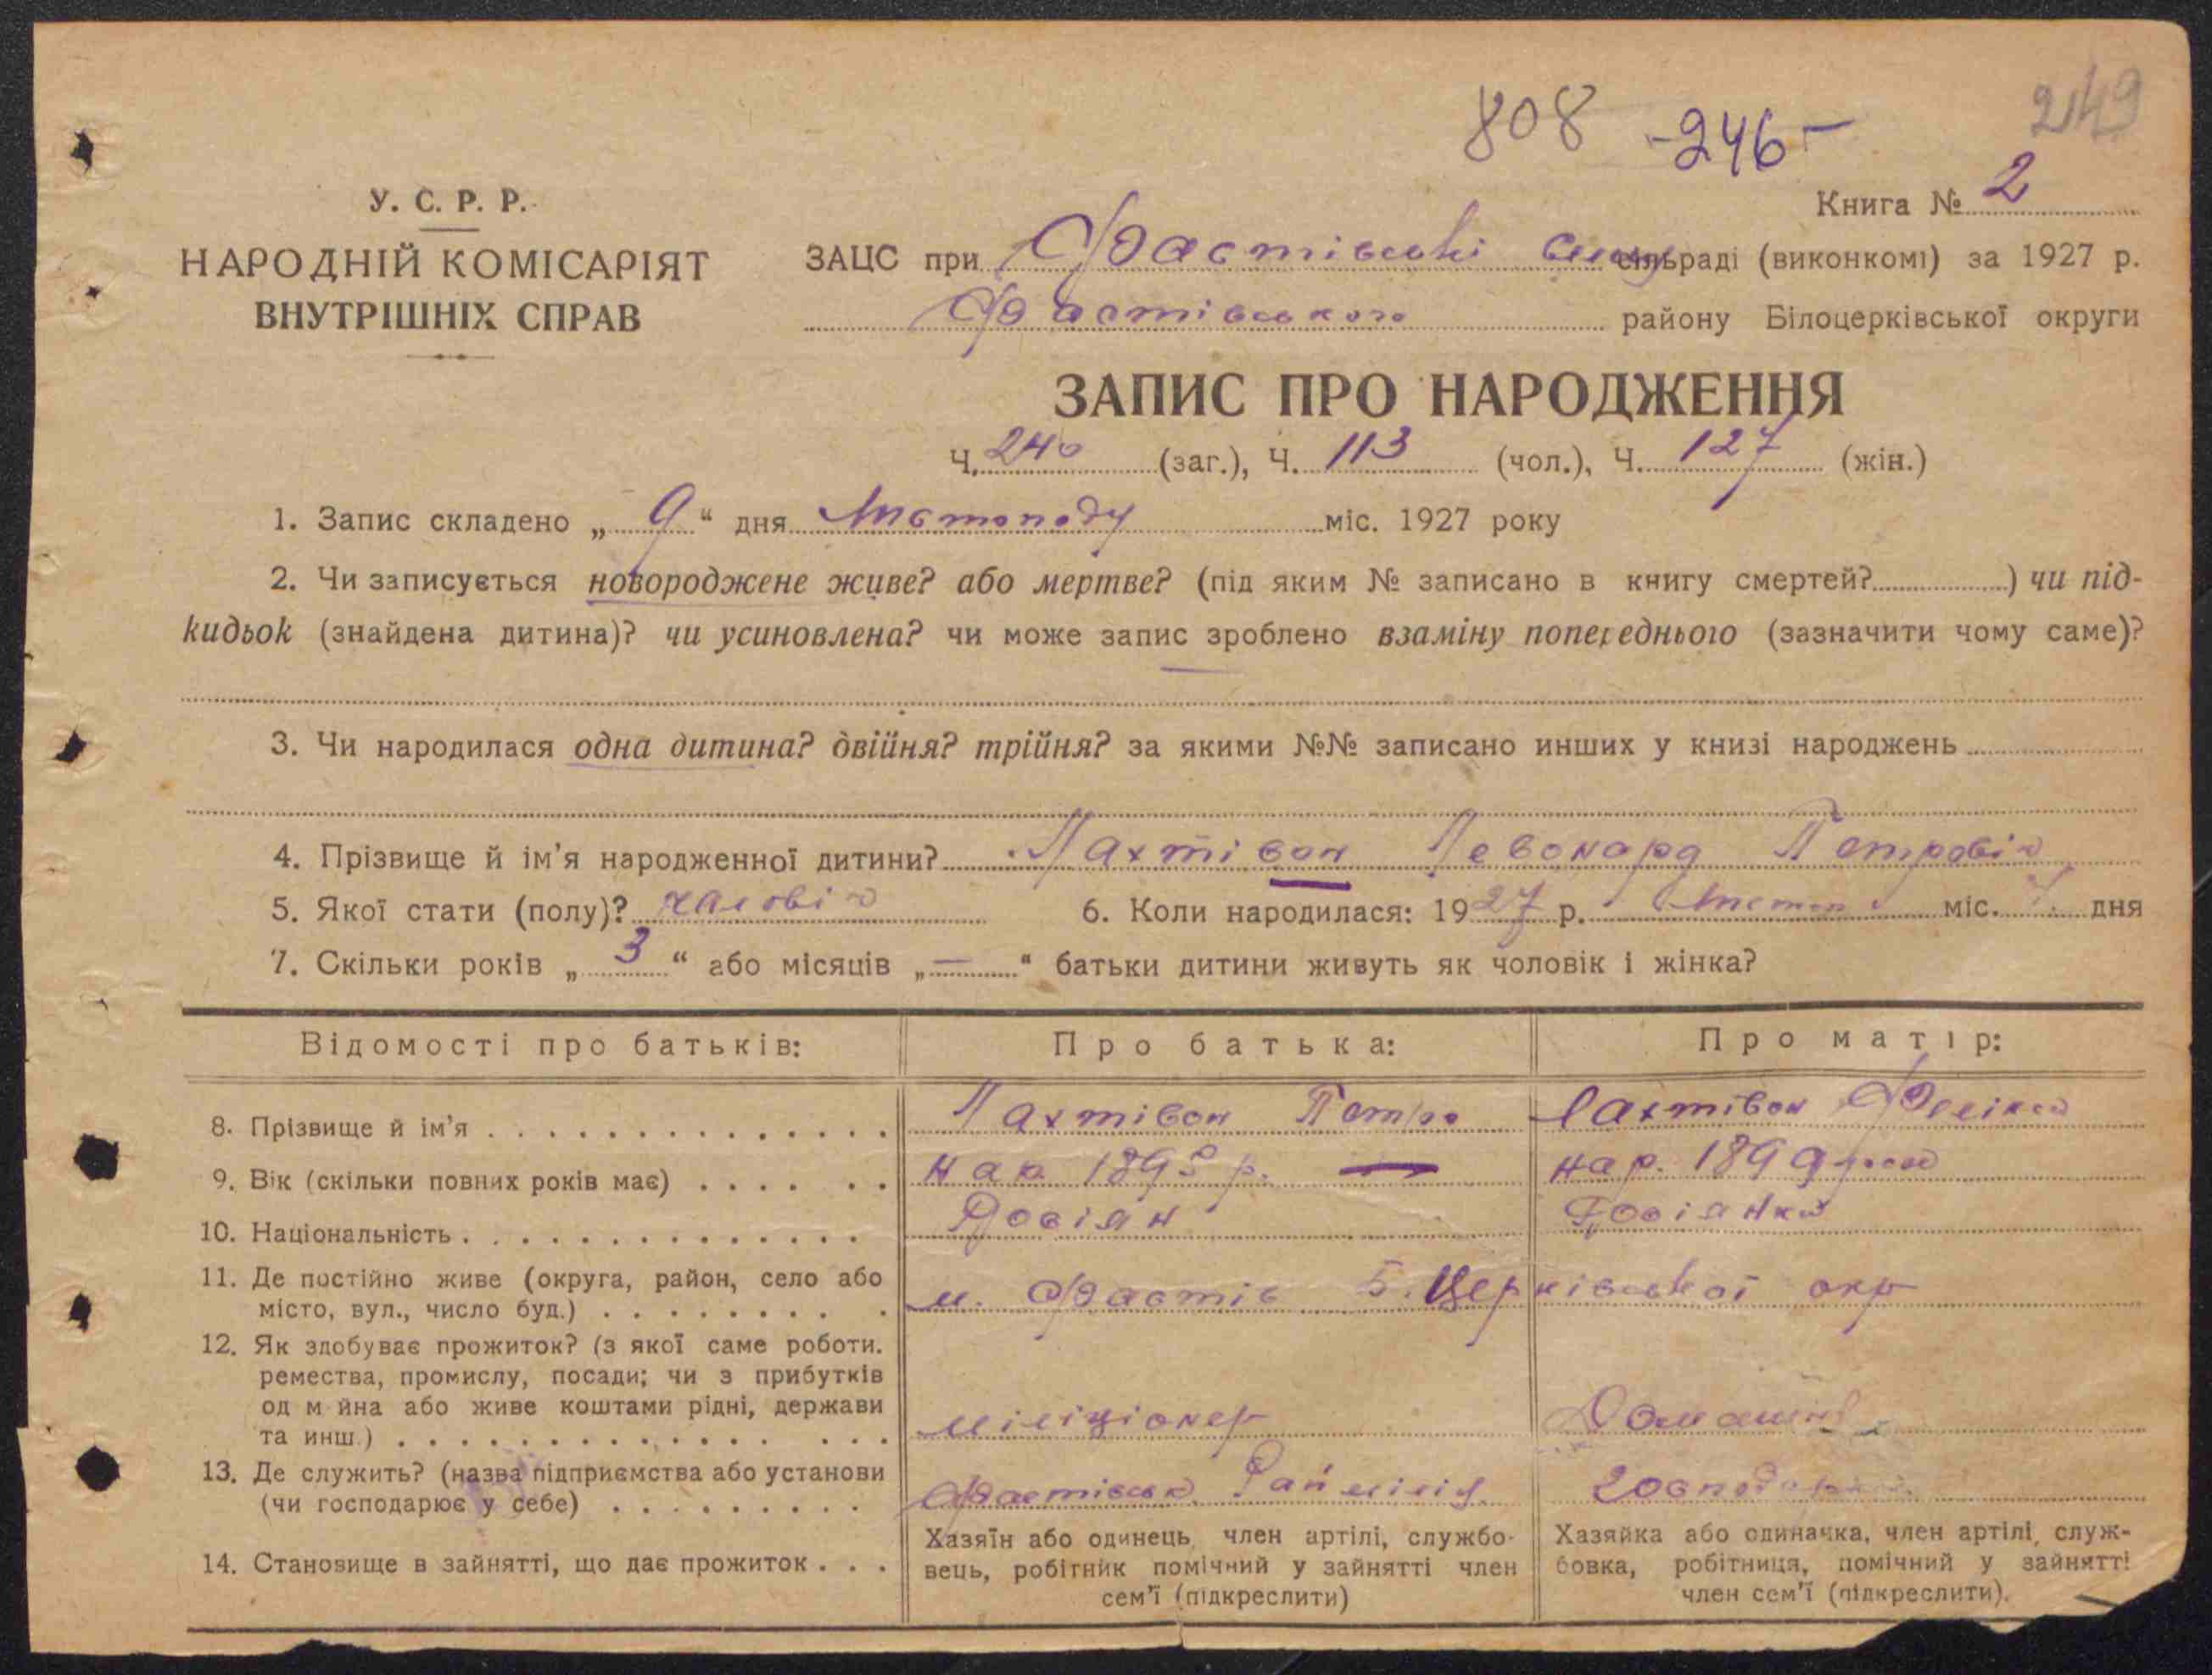 808 -246- 249
Книга № 2
У. С. Р. Р.
НАРОДНІЙ КОМІСАРІЯТ
ВНУТРІШНІХ СПРАВ
ЗАЦС при Фастівські сільраді (виконкомі) за 1927 р.
Фастівського району Білоцерківської округи
ЗАПИС ПРО НАРОДЖЕННЯ
Ч. 240 (заг.), Ч. 113 (чол.), Ч. 127 (жін.)
1. Запис складено „ 9 “ дня Листопаду міс. 1927 року
2. Чи записується новороджене живе? або мертве? (під яким № записано в книгу смертей? ) чи під-
кидьок (знайдена дитина)? чи усиновлена? чи може запис зроблено взаміну попереднього (зазначити чому саме)?
3. Чи народилася одна дитина? двійня? трійня? за якими №№ записано инших у книзі народжень
4. Прізвище й ім’я народженної дитини? Лахтівон Левонард Петровіч
5. Якої стати (полу)? чаловіч 6. Коли народилася: 1927 р. Листоп. міс. 7. дня
7. Скільки років „ 3 “ або місяців „ — “ батьки дитини живуть як чоловік і жінка?
Відомості про батьків: Про батька: Про матір:
8. Прізвище й ім’я Лахтівон Петро Лахтівон
9. Вік (скільки повних років має) нар. 1895 р. — нар. 1899
10. Національність Росіян Росіянка
11. Де постійно живе (округа, район, село або
місто, вул., число буд.) м. Фастів Б. Церківської окр
12. Як здобуває прожиток? (з якої саме роботи.
ремества, промислу, посади; чи з прибутків
од м йна або живе коштами рідні, держави
та инш.) міліціонер Домашнє
13. Де служить? (назва підприємства або установи
(чи господарює у себе) Фастівськ. Райміліц. господар
14. Становище в зайнятті, що дає прожиток
Хазяїн або одинець, член артілі, службо-
вець, робітник помічний у зайнятті член
сем’ї (підкреслити)
Хазяйка або одиначка, член артілі, служ-
бовка, робітниця, помічний у зайнятті
член сем’ї (підкреслити).